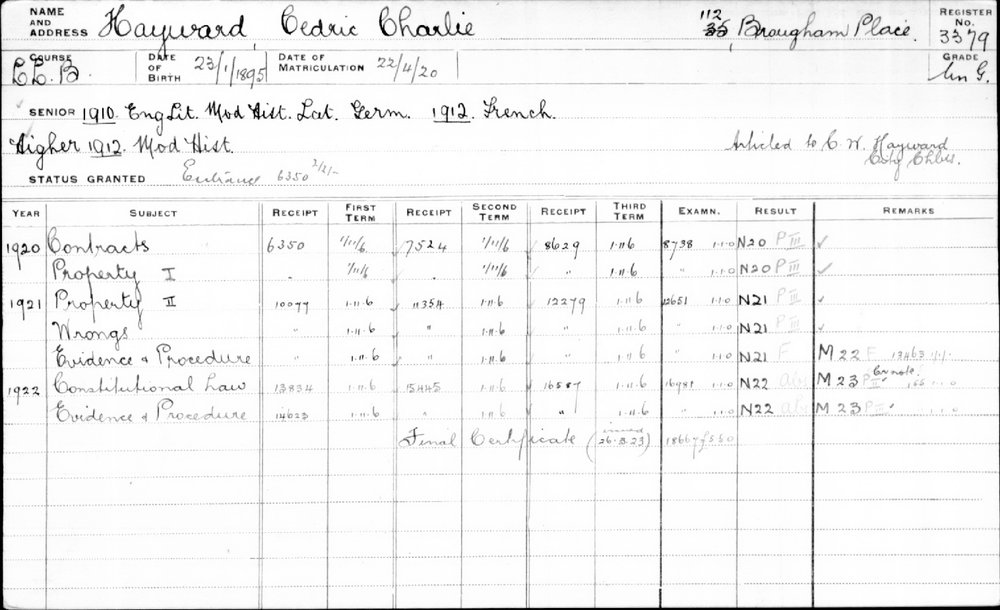 NAME AND ADDRESS Hayward, Cedric Charlie 112 35, Brougham Place. REGISTER No. 3379
COURSE LL.B. DATE OF BIRTH 23/1/1895 DATE OF MATRICULATION 22/4/20 GRADE Un G.
SENIOR 1910. Eng Lit. Mod Hist. Lat. Germ. 1912. French.
Higher 1912. Mod Hist. Articled to C. W. Hayward
STATUS GRANTED Entrance 6350 2/2/-
YEAR SUBJECT RECEIPT FIRST TERM RECEIPT SECOND TERM RECEIPT THIRD TERM EXAMN. RESULT REMARKS
1920 Contracts 6350 1/11/6 7524 1/11/6 8629 1·11·6 8738 1·1·0 N20 P III ✓
Property I " 1/11/6 " 1/11/6 " 1·11·6 " 1·1·0 N20 P III ✓
1921 Property II 10077 1·11·6 11354 1·11·6 12279 1·11·6 12651 1·1·0 N21 P III ✓
Wrongs " 1·11·6 " 1·11·6 " 1·11·6 " 1·1·0 N21 P III ✓
Evidence & Procedure " 1·11·6 " 1·11·6 " 1·11·6 " 1·1·0 N21 F M 22 F 13463 1·1·
1922 Constitutional Law 13834 1·11·6 15445 1·11·6 16587 1·11·6 16981 1·1·0 N22 abs M 23 P III Cr note. 1·1·0
Evidence & Procedure 14623 1·11·6 " 1·11·6 " 1·11·6 " 1·1·0 N22 abs M 23 P III 1·1·0
Final Certificate (issued 26·3·23) 18667 £5·5·0